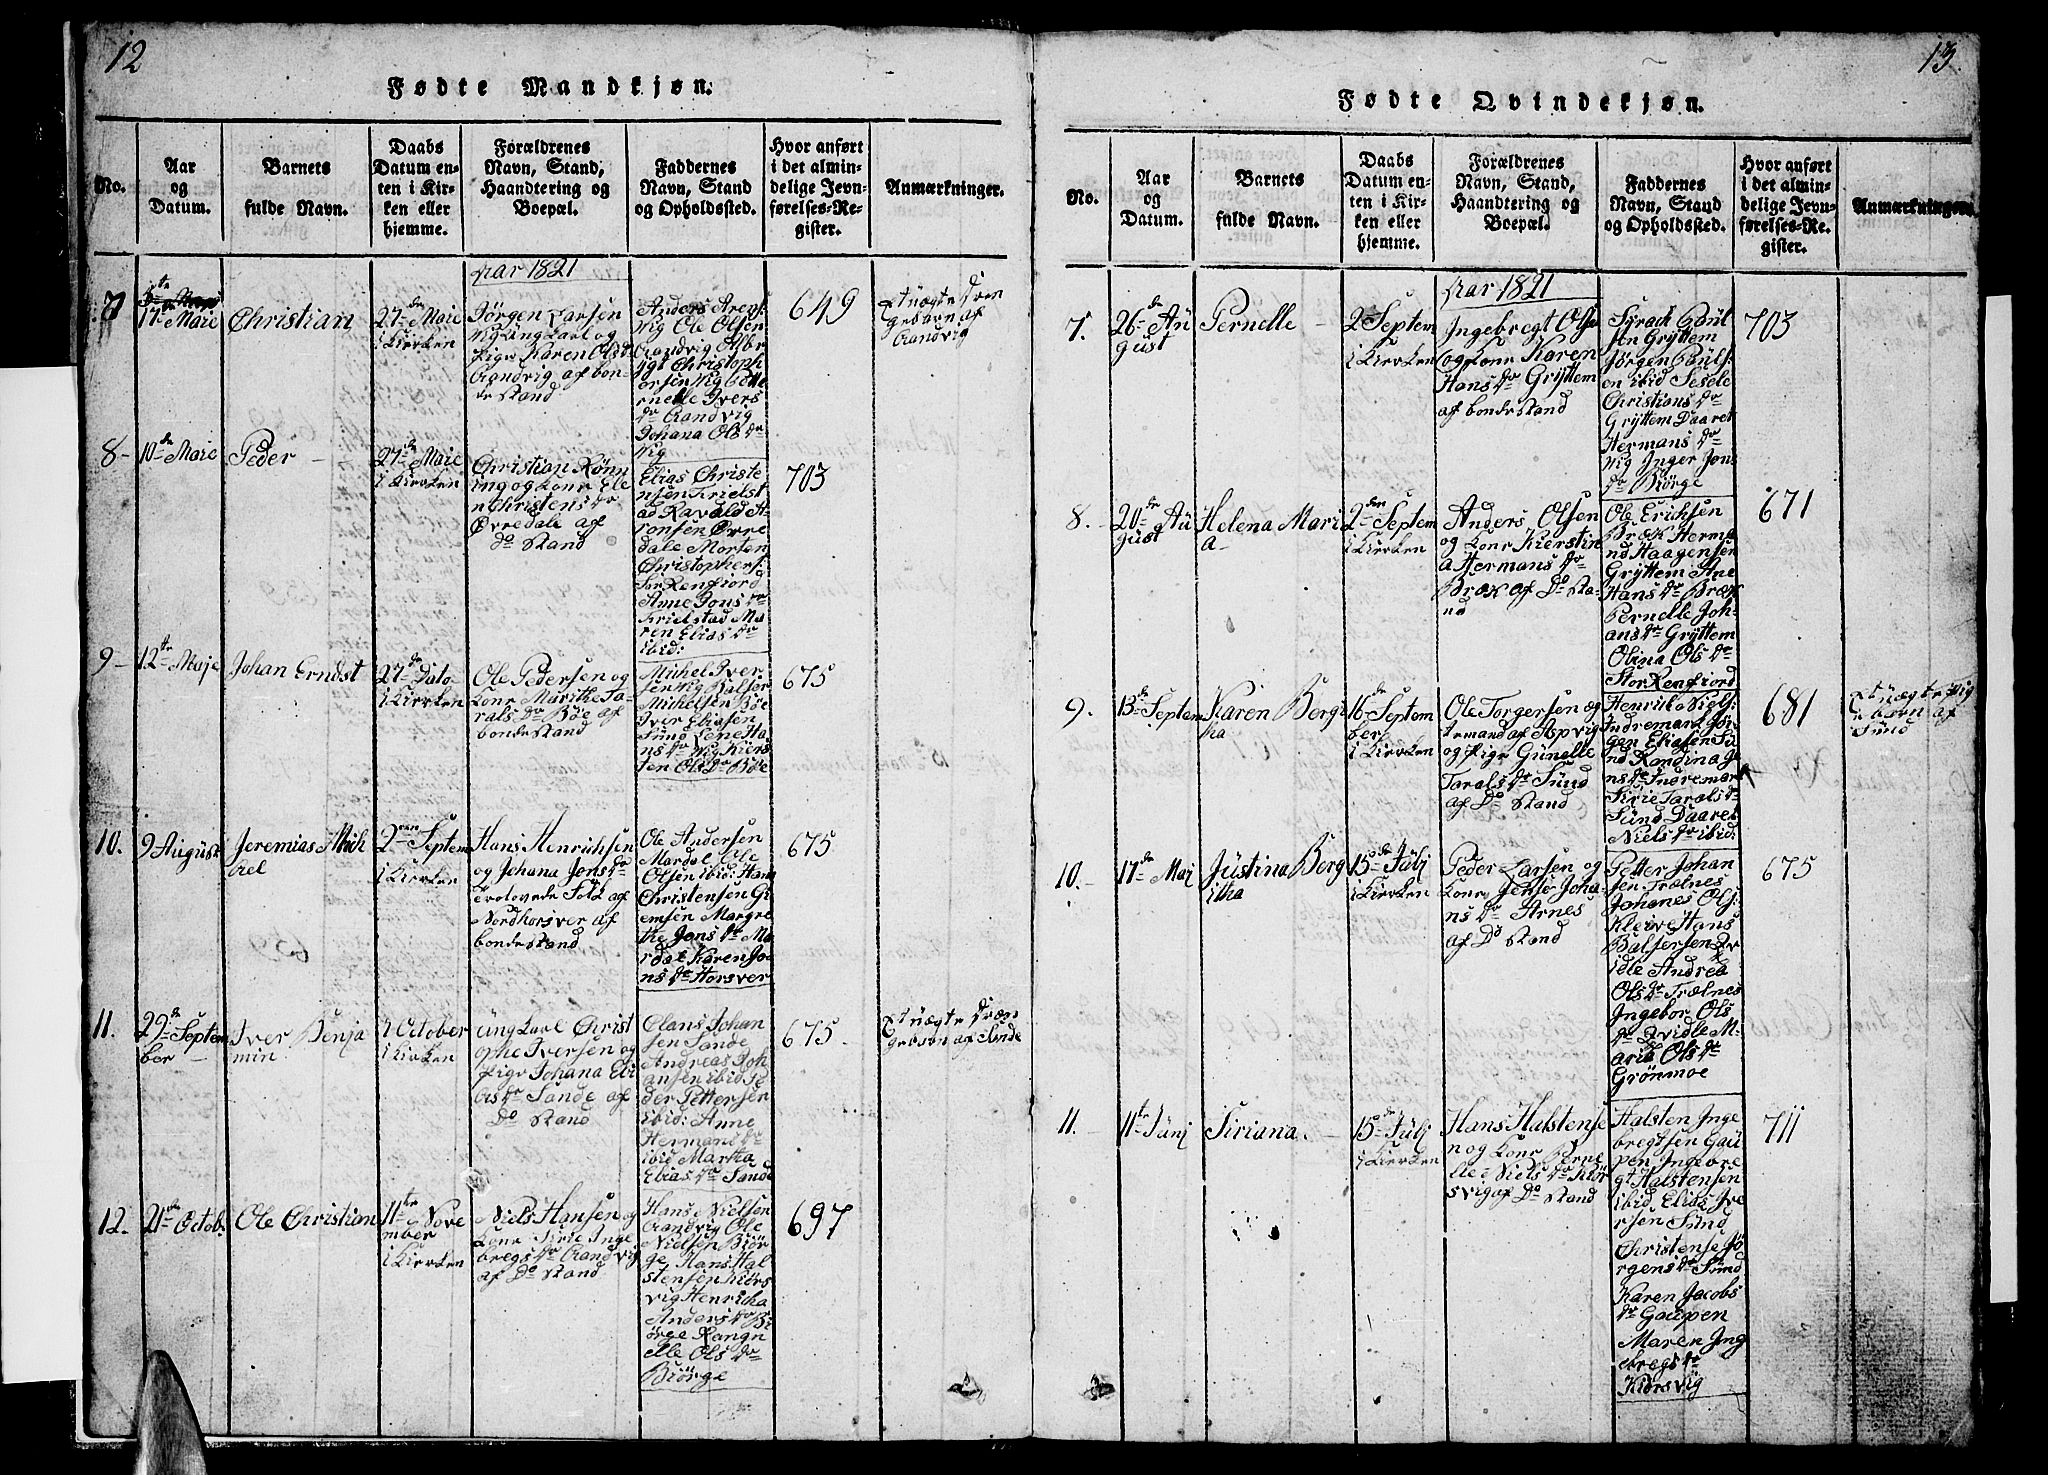 12
Fødte Mandkjøn.
No.
Aar
og
Datum.
Barnets
fulde Navn.
Daabs
Datum en-
ten i Kir-
ken eller
hjemme.
Forældrenes
Navn, Stand,
Haandtering og
Boepæl.
Faddernes
Navn, Stand
og Opholdssted.
Hvor anført
i det almin-
delige Jevn-
førelses-Re-
gister.
Anmærkninger.
Aar 1821
7
17de Maie
Christian
27de Maie
i Kierken
Jörgen Larsen
Wig ung karl og
Pige Karen Olsdr
Randvig af bon-
de stand
Anders Arens
Wig Ole Olsen
Randvig Olbr
ygt Christoph
ersen Wig Pette
rnelle Ivers
dr Randvig
Johana Ols dr
Wig
649
8-
10de Maie
Peder
27de Maie
i Kierken
Christian Rønn
ing og kone Ele
n Christens dr
Øvredale af
do stand
Elias Christe
nsen Frielst
ad Ravald A-
ronsen Øvre
dale Morten
Christophers:
Sørkenfiord
Anne Jons dr
Frielstad Ma
ren Elias dr
ibid:
703
9-
12te Maje
Johan Erndst
27de Dato
i Kierken
Ole Pedersen og
kone Marithe Ta-
rals dr Böe af
bondestand
Michel Iver
sen Wig Balser
Michelsen Böe
Iver Eliasen
Sund Lene Ha
ns dr Wig Kiers
ten Ols dr Böe
675
10.
9 August
Jeremias Mich
ael
2den Septem
i Kierken
Hans Henrichsen
og Johana Jons dr
trolovede Folk af
Nordhorsver af
bondestand
Ole Andersen
Mardal Ole
Olsen ibid: Hans
Christensen Gi
emsen Margre
the Jons dr Ma
rdal Karen Jo-
ns dr Horsver
675
11.
29de Septem
ber
Iver Benja
min
7 October
i Kierken
ung karl Christ
ophe Iversen og
Pige Johana Eli
as dr Sande af
do stand
Clans Johan
sen Sande
Andreas Joh
ansen ibid Pe
der Pettersen
ibid: Anne
Hermans dr
ibid Martha
Elias dr Sande
675
12.
21de Octob:
Ole Christian
11te Nove
mber
i Kierken
Niels Hansen og
kone Sirie Inge
bregs dr Randvig
af do stand
Hans Nielsen
Randvig Ole
Nielsen Biör
ge Hans Hal
stensen Kiörs
vig Henricha
Anders dr Bi
örge Rangn
elle Ols dr
Biörge
697
13
Fødte Qvindekjøn.
No.
Aar
og
Datum.
Barnets
fulde Navn.
Daabs
Datum en-
ten i Kir-
ken eller
hjemme.
Forældrenes
Navn, Stand,
Haandtering og
Boepæl.
Faddernes
Navn, Stand
og Opholdssted.
Hvor anført
i det almin-
delige Jevn-
førelses-Re-
gister.
Anmærkninger.
Aar 1821
7.
26de Au
gust
Pernelle
2 Septem
i Kierken
Ingebregt Olse
og kone Karen
Hans dr Gryttem
af bondestand
Syrach Poul
sen Gryttem
Jörgen Pouls:
en ibid Sesele
Christians dr
Gryttem Daaret
Hermans dr
Wig Inger Jons
dr Biörge
703
8.
20de Au
gust
Helena Mari
a
2den Septem
i Kierken
Anders Olsen
og kone Kierstin
a Hermans dr
Bræk af do sta-
nd
Ole Erichsen
Bræk Herma
nd Haagensen
Gryttem Ane
Hans dr Bræk
Pernelle Joh-
ans dr Gryttem
Olina Ols dr
Storkenfiord
671
9.
13de Septem
Karen Berge
tha
16de Septem
ber
i Kierken
Ole Torgersen og
og Pige Gunelle
Tarals dr Sund
af do stand
Henrik Niels:
Indremark Jör-
gen Eliasen Su
nd Randina Je
ns dr Indremark
Sirie Tarals dr
Sund Daaret
Niels dr ibid:
681
10.
17de Maj
Justina Berg
itha
15de Julj
i Kierken
Peder Larsen og
kone Jense Joha-
ns dr Arnes
af do stand
Petter Johan
sen Trælnes
Johanes Ols:
Kleive Hans
Balsersen Qv
idle Andrea
Ols dr Trælnes
Ingebor Ols
dr Qvidle M-
aria Ols dr
Grönmoe
675
11.
11te Junj
Siriana.
15de Julj
i Kierken
Hans Halstense
n og kone Perne
lle Niels dr Kiör
svig af do stand
Halsten Inge
bregtsen Gau
pen Ingebre
gt Halstensen
ibid Elias Ive
rsen Sund
Christense Jö
rgens dr Sund
Karen Jacobs
dr Gaupen
Maren Ing
ebregs dr
Kiörsvig
711